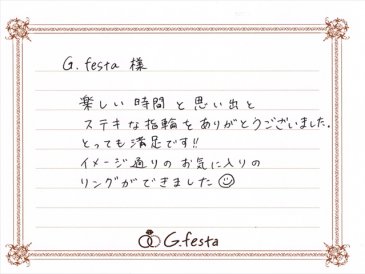 G.festa 様
楽しい時間と思い出と
ステキな指輪をありがとうございました.
とっても満足です!!
イメージ通りのお気に入りの
リングができました☺
G.festa